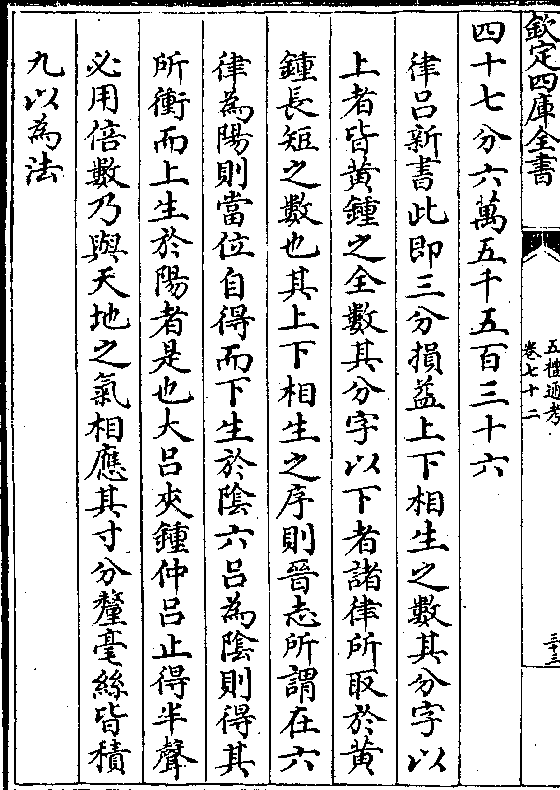 欽定四庫全書
五禮通考
卷七十二
三十三
四十七分六萬五千五百三十六
律呂新書此即三分損益上下相生之數其分字以
上者皆黃鍾之全數其分字以下者諸律所取於黃
鍾長短之數也其上下相生之序則晉志所謂在六
律為陽則當位自得而下生於陰六呂為陰則得其
所衝而上生於陽者是也大呂夾鍾仲呂止得半聲
必用倍數乃與天地之氣相應其寸分釐毫絲皆積
九以為法